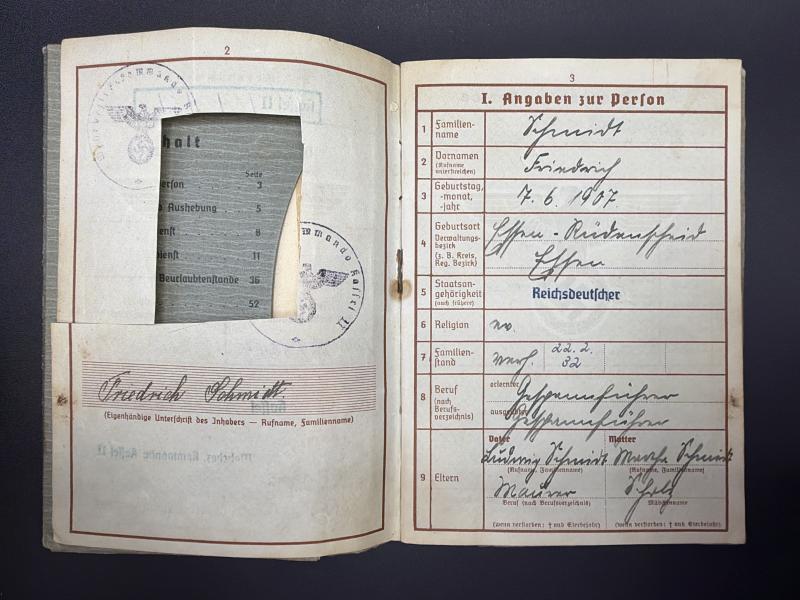 2
Kassel II
halt
Seite
erson 3
Aushebung 5
nst 8
ienst 11
Beurlaubtenstande 36
52
mmando Kassel II
Friedrich Schmidt.
(Eigenhändige Unterschrift des Inhabers — Rufname, Familienname)
3
I. Angaben zur Person
1 Familien-
name
Schmidt
2 Vornamen
(Rufname
unterstreichen)
Friedrich
3 Geburtstag,
-monat,
-jahr
7. 6. 1907.
4 Geburtsort
Verwaltungs-
bezirk
(z. B. Kreis,
Reg. Bezirk)
Essen - Rüdenscheid
Essen
5 Staatsan-
gehörigkeit
(auch frühere)
Reichsdeutscher
6 Religion
ev.
7 Familien-
stand
verh. 22. 2.
32
8 Beruf
(nach
Berufs-
verzeichnis)
erlernter
Gespannführer
ausgeübter
Gespannführer
9 Eltern
Vater Mutter
Ludwig Schmidt Martha Schmidt
(Rufname, Familienname) (Rufname, Familienname)
Maurer Scholz
Beruf (nach Berufsverzeichnis) Mädchenname
(wenn verstorben: † und Sterbejahr) (wenn verstorben: † und Sterbejahr)